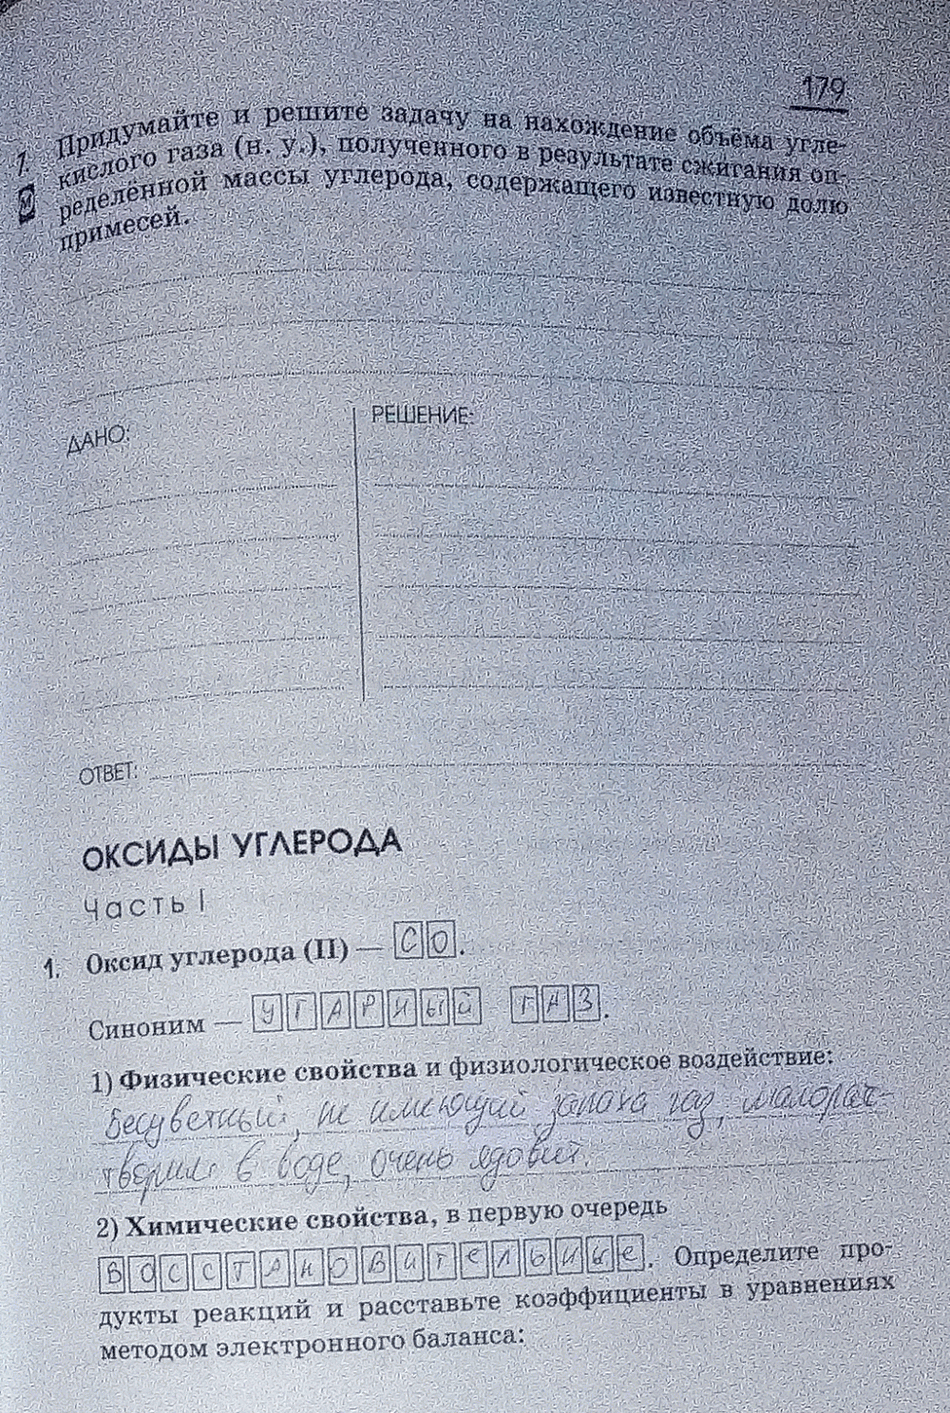 179
7. Придумайте и решите задачу на нахождение объёма угле-
М кислого газа (н. у.), полученного в результате сжигания оп-
ределённой массы углерода, содержащего известную долю
примесей.
ДАНО:
РЕШЕНИЕ:
ОТВЕТ:
ОКСИДЫ УГЛЕРОДА
Часть I
1. Оксид углерода (II) — СО.
Синоним — УГАРНЫЙ ГАЗ.
1) Физические свойства и физиологическое воздействие:
Бесцветный, не имеющий запаха газ, малорас-
творим в воде, очень ядовит.
2) Химические свойства, в первую очередь
ВОССТАНОВИТЕЛЬНЫЕ. Определите про-
дукты реакций и расставьте коэффициенты в уравнениях
методом электронного баланса: